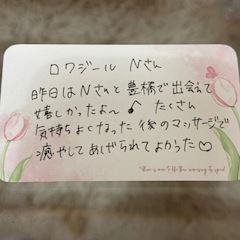 ロワジール Nさん
昨日はNさんと豊橋で出会えて
嬉しかったよ〜♪ たくさん
気持ちよくなった後のマッサージで
癒やしてあげられてよかった♡